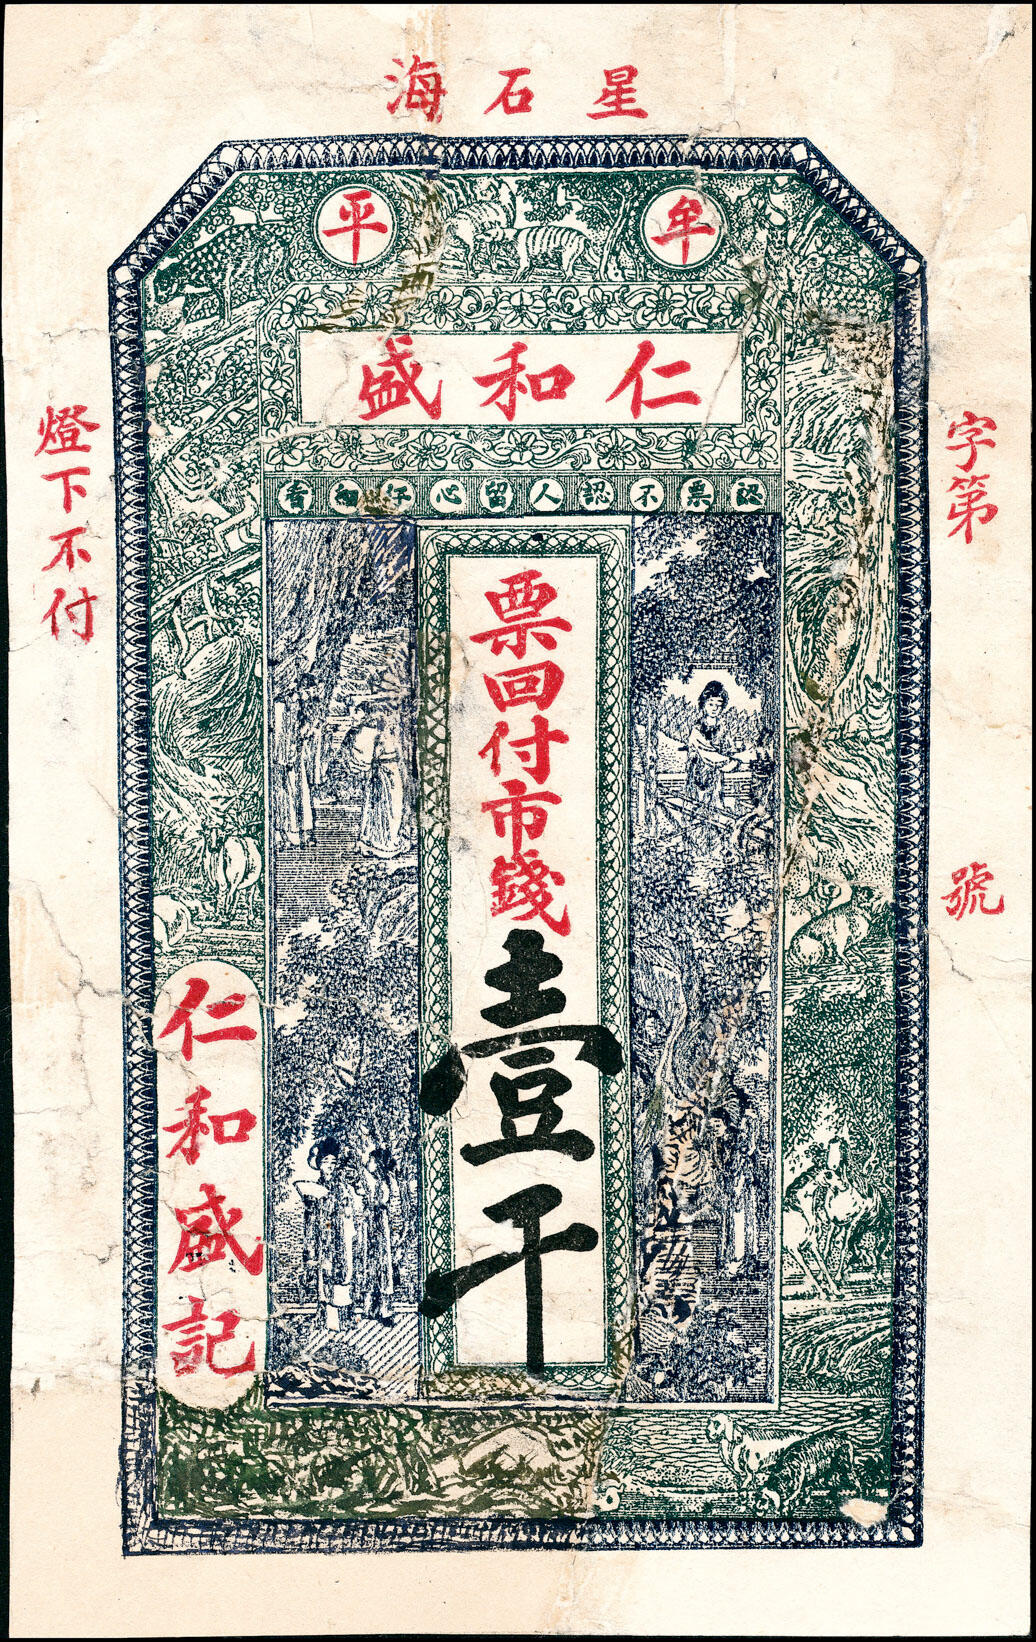 星石海
牟平
仁和盛
認票不認人留心仔細看
字第 號
票回付市錢壹千
仁和盛記
燈下不付